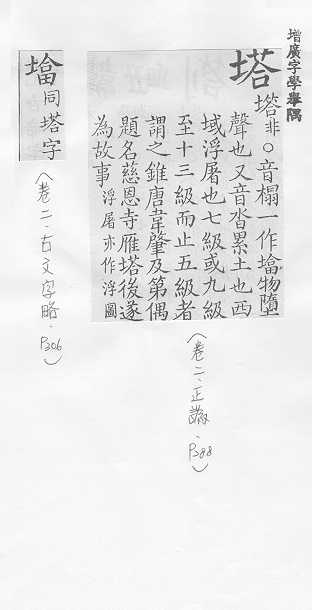 增廣字學舉隅
塔
㙮非○音榻一作墖物墮
聲也又音沓累土也西
域浮屠也七級或九級
至十三級而止五級者
謂之錐唐韋肇及第偶
題名慈恩寺雁塔後遂
為故事浮屠亦作浮圖
(卷二、正譌.P288)
墖同塔字
(卷二、古文字略.P206)